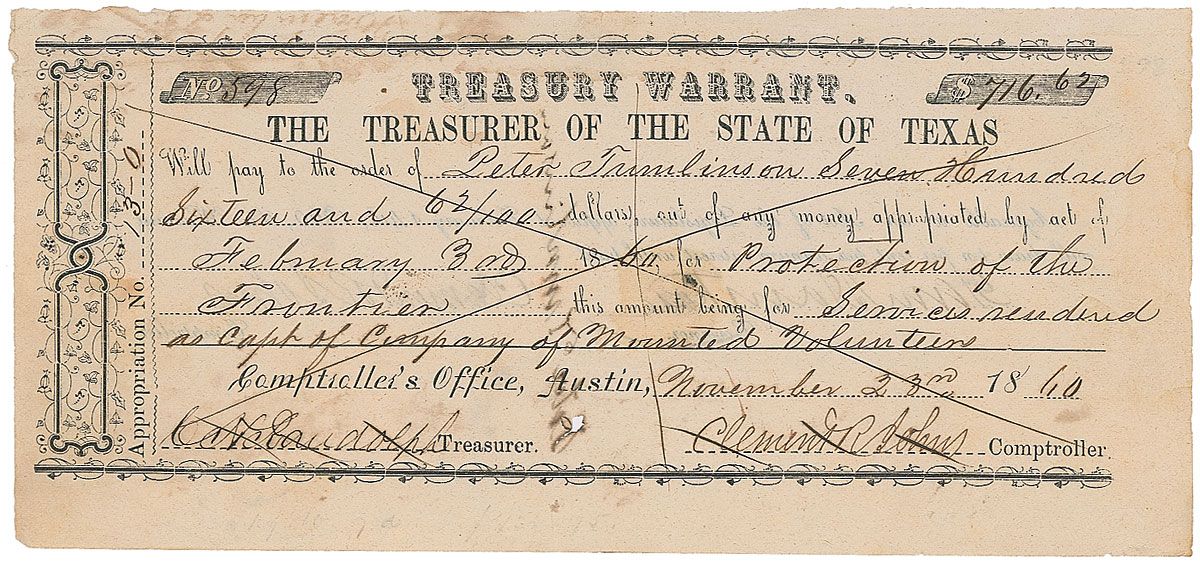 No 598 TREASURY WARRANT. $ 716.62
THE TREASURER OF THE STATE OF TEXAS
Will pay to the order of Peter Tumlinson Seven Hundred
Sixteen and 62/100 dollars, out of any money appropriated by act of
February 3rd 1860, for Protection of the
Frontier this amount being for Services rendered
as Capt of Company of Mounted Volunteers
Comptroller's Office, Austin, November 23rd 1860
C. H. Randolph Treasurer. Clement R Johns Comptroller.
Appropriation No. 13-0